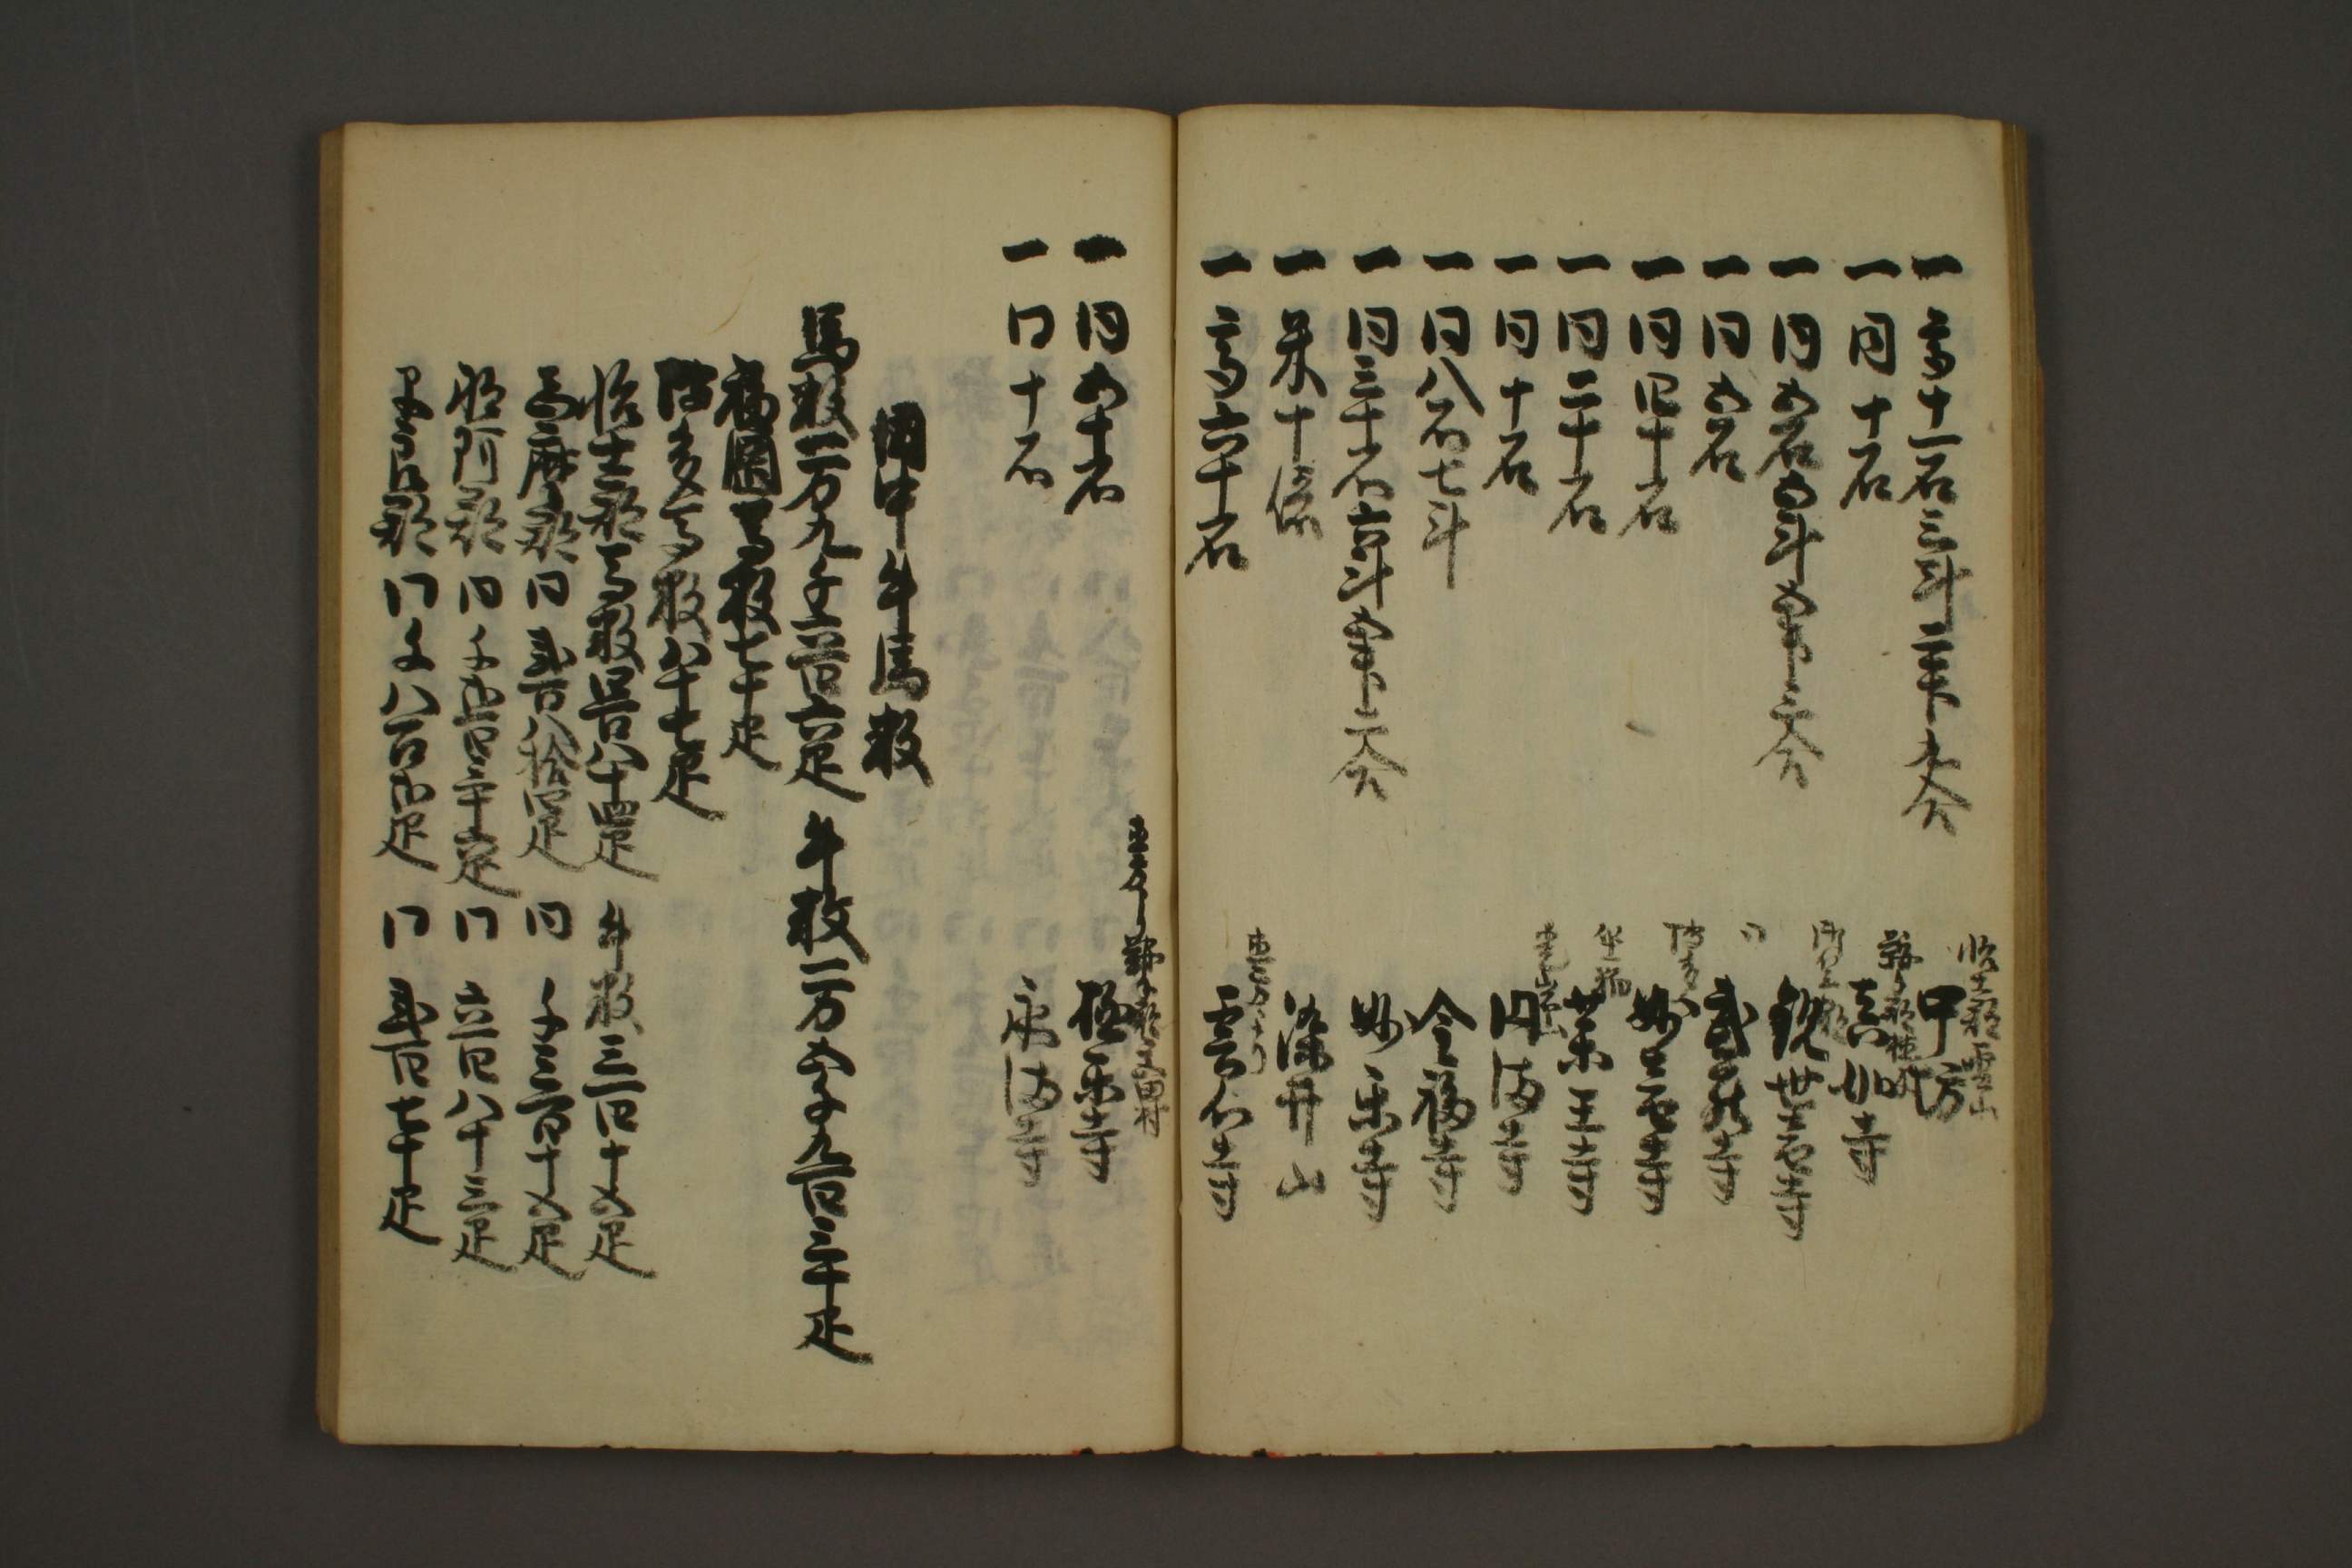 一高十一石三斗二升六合　怡土郡雷山　中坊
一同十石　真如寺
一同五石五斗五升三合　観世音寺
一同五石　同　武蔵寺
一同四十石　博多　妙音寺
一同二十石　薬王寺
一同十石　円満寺
一同八石七斗　金福寺
一同三十石六斗五升二合　妙楽寺
一米十俵　染井山
一高六十石　雲心寺
一同五十石　極楽寺
一同十石　承満寺
国中牛馬数
馬数二万九千六百六疋　牛数一万五千九百三十疋
福岡馬数七十疋
博多馬数八十七疋
怡土郡馬数四百八十四疋　牛数三百十五疋
志麻郡同弐百八拾四疋　同千三百十五疋
那珂郡同千四百三十六疋　同六百八十三疋
早良郡同千八百四疋　同弐百七十疋